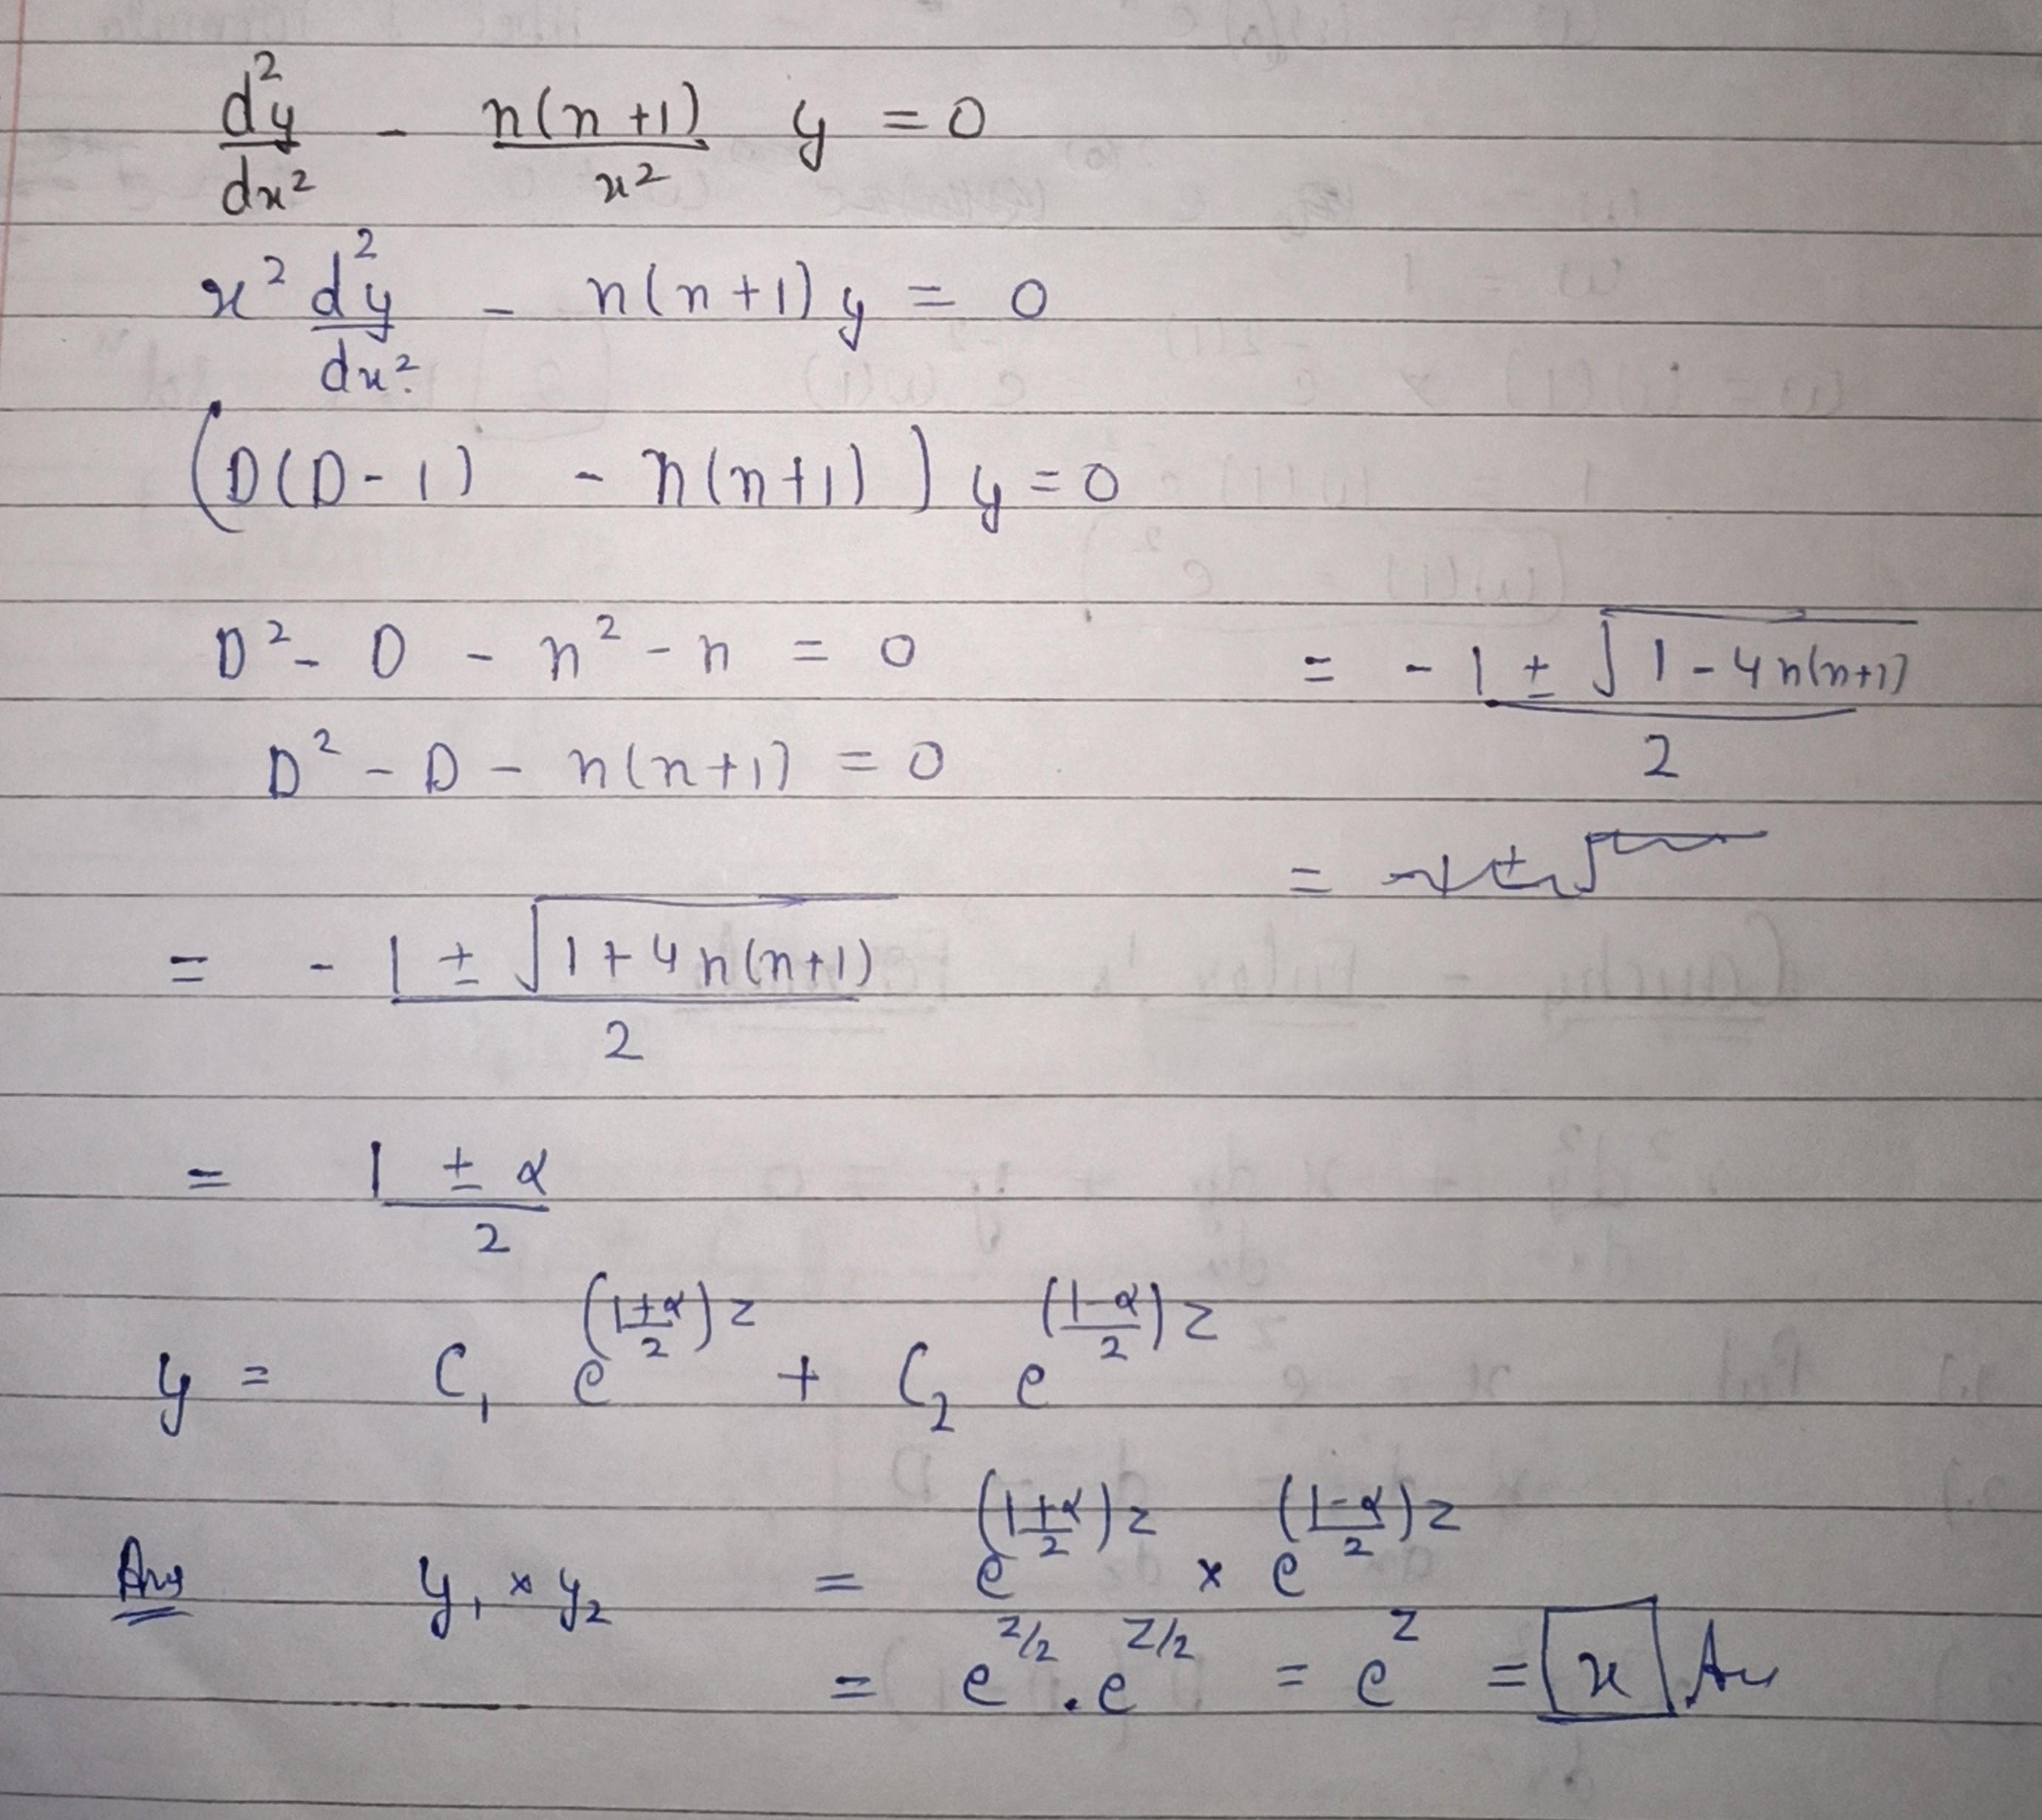 d²y/dx² - n(n+1)/x² y = 0
x² d²y/dx² - n(n+1)y = 0
(D(D-1) - n(n+1)) y = 0
D² - D - n² - n = 0
D² - D - n(n+1) = 0
= -1 ± √(1+4n(n+1)) / 2
= -1 ± √(1-4n(n+1)) / 2
= 1 ± α / 2
y = C₁ e^((1+α)/2)z + C₂ e^((1-α)/2)z
Ans y₁ × y₂ = e^((1+α)/2)z × e^((1-α)/2)z
= e^(z/2) . e^(z/2) = e^z = x